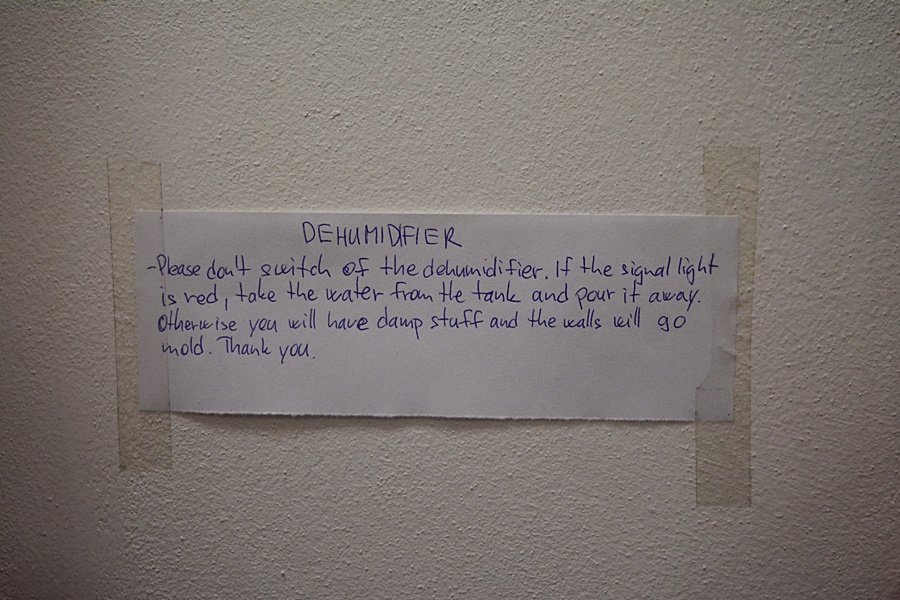 DEHUMIDIFIER
-Please don't switch of the dehumidifier. If the signal light
is red, take the water from the tank and pour it away.
Otherwise you will have damp stuff and the walls will go
mold. Thank you.